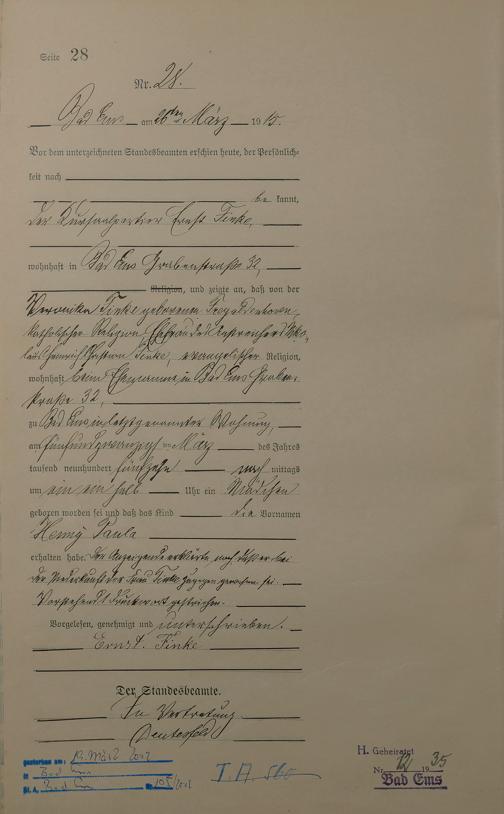 Seite 28
Nr. 28.
Bad Ems am 26ten März 1915.
Vor dem unterzeichneten Standesbeamten erschien heute, der Persönlich-
keit nach
be kannt,
der Kursaalportier Ernst Finke,
wohnhaft in Bad Ems Grabenstraße 32,
Religion, und zeigte an, daß von der
Veronika Finke geborenen
katholischer Religion, Ehefrau des
Heinrich Finke, evangelischer Religion,
wohnhaft beim Ehemanne, in Bad Ems Graben-
straße 32,
zu Bad Ems in letztgenannter Wohnung,
am fünfundzwanzigsten März des Jahres
tausend neunhundert fünfzehn nach mittags
um ein ein halb Uhr ein Mädchen
geboren worden sei und daß das Kind die Vornamen
Henny Paula
erhalten habe. Der Anzeigende erklärte noch daß er bei
der Niederkunft der Frau Finke zugegen gewesen sei.
Vorstehend 1 Druckwort gestrichen.
Vorgelesen, genehmigt und unterschrieben.
Ernst. Finke
Der Standesbeamte.
In Vertretung
gestorben am: 12. März 2012
in Bad Ems
St. A. Bad Ems Nr. 105/2012
H. Geheiratet
Nr 12 1935
Bad Ems